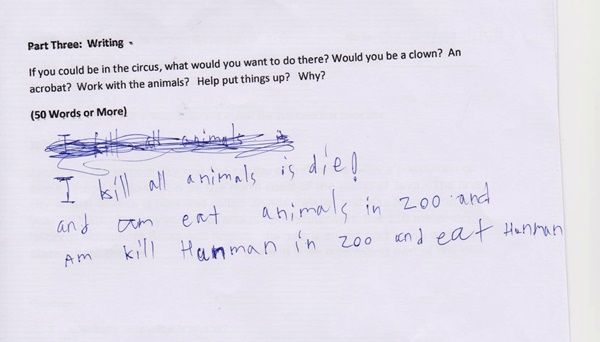 Part Three: Writing
If you could be in the circus, what would you want to do there? Would you be a clown? An
acrobat? Work with the animals? Help put things up? Why?
(50 Words or More)
I kill all animals is
I kill all animals is die!
and am eat animals in zoo and
Am kill Hanman in zoo and eat Hanman